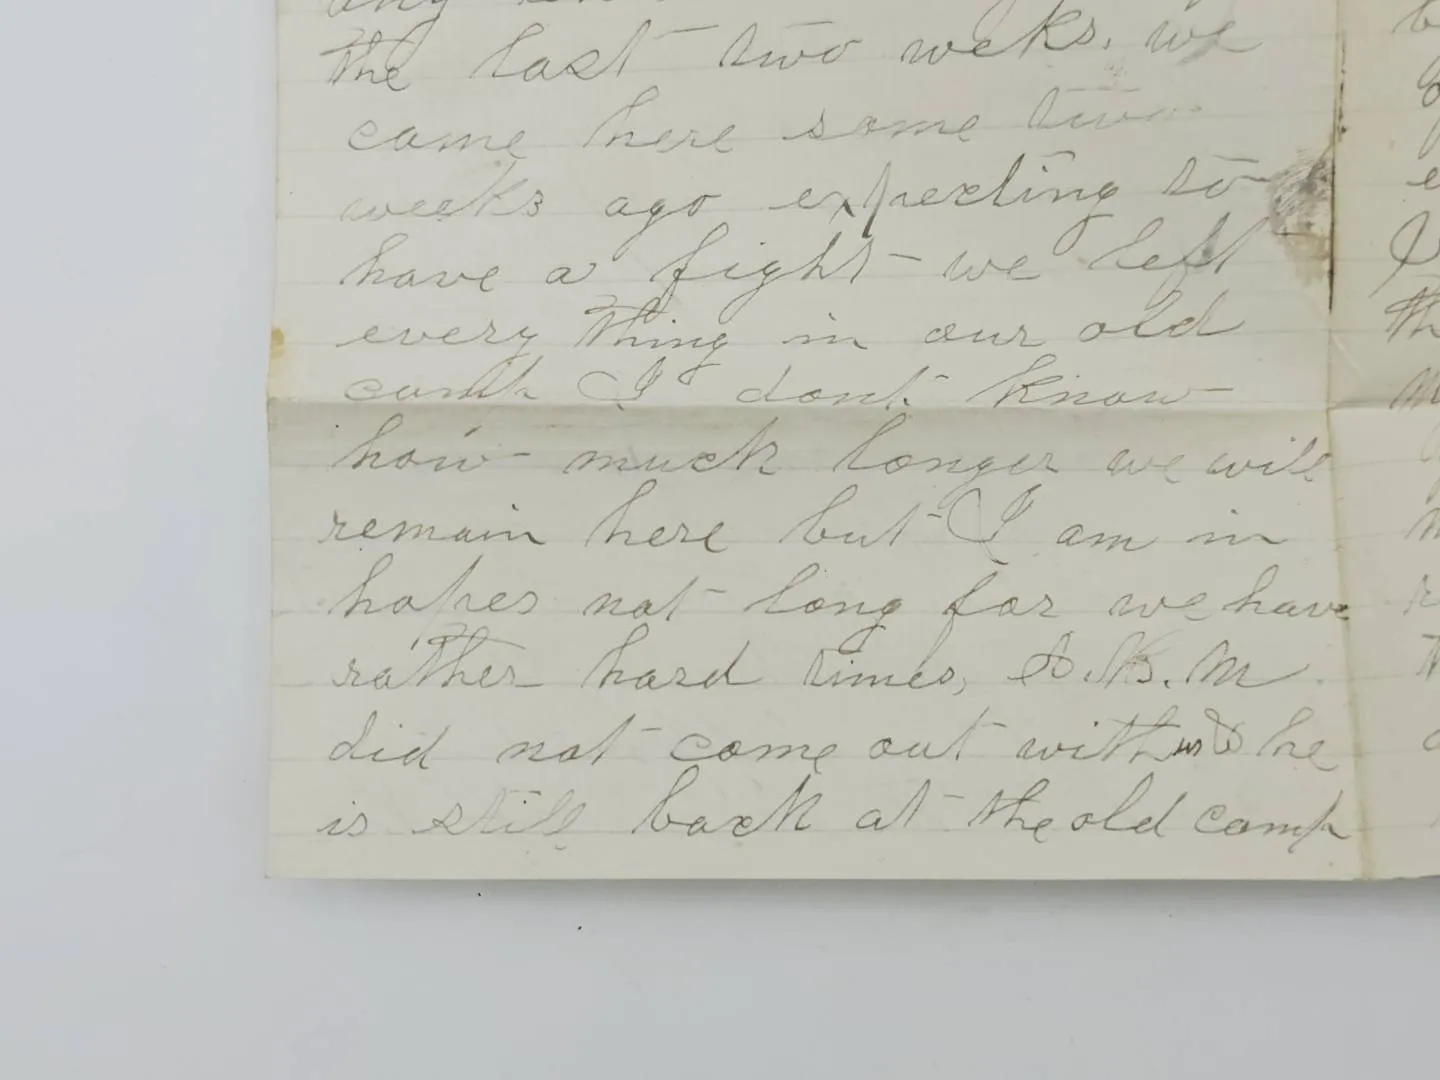 any
the last two weeks. we
came here some two
weeks ago expecting to
have a fight we left
every thing in our old
camp I dont know
how much longer we will
remain here but I am in
hopes not long for we have
rather hard times, B. M
did not come out with us & he
is still back at the old camp